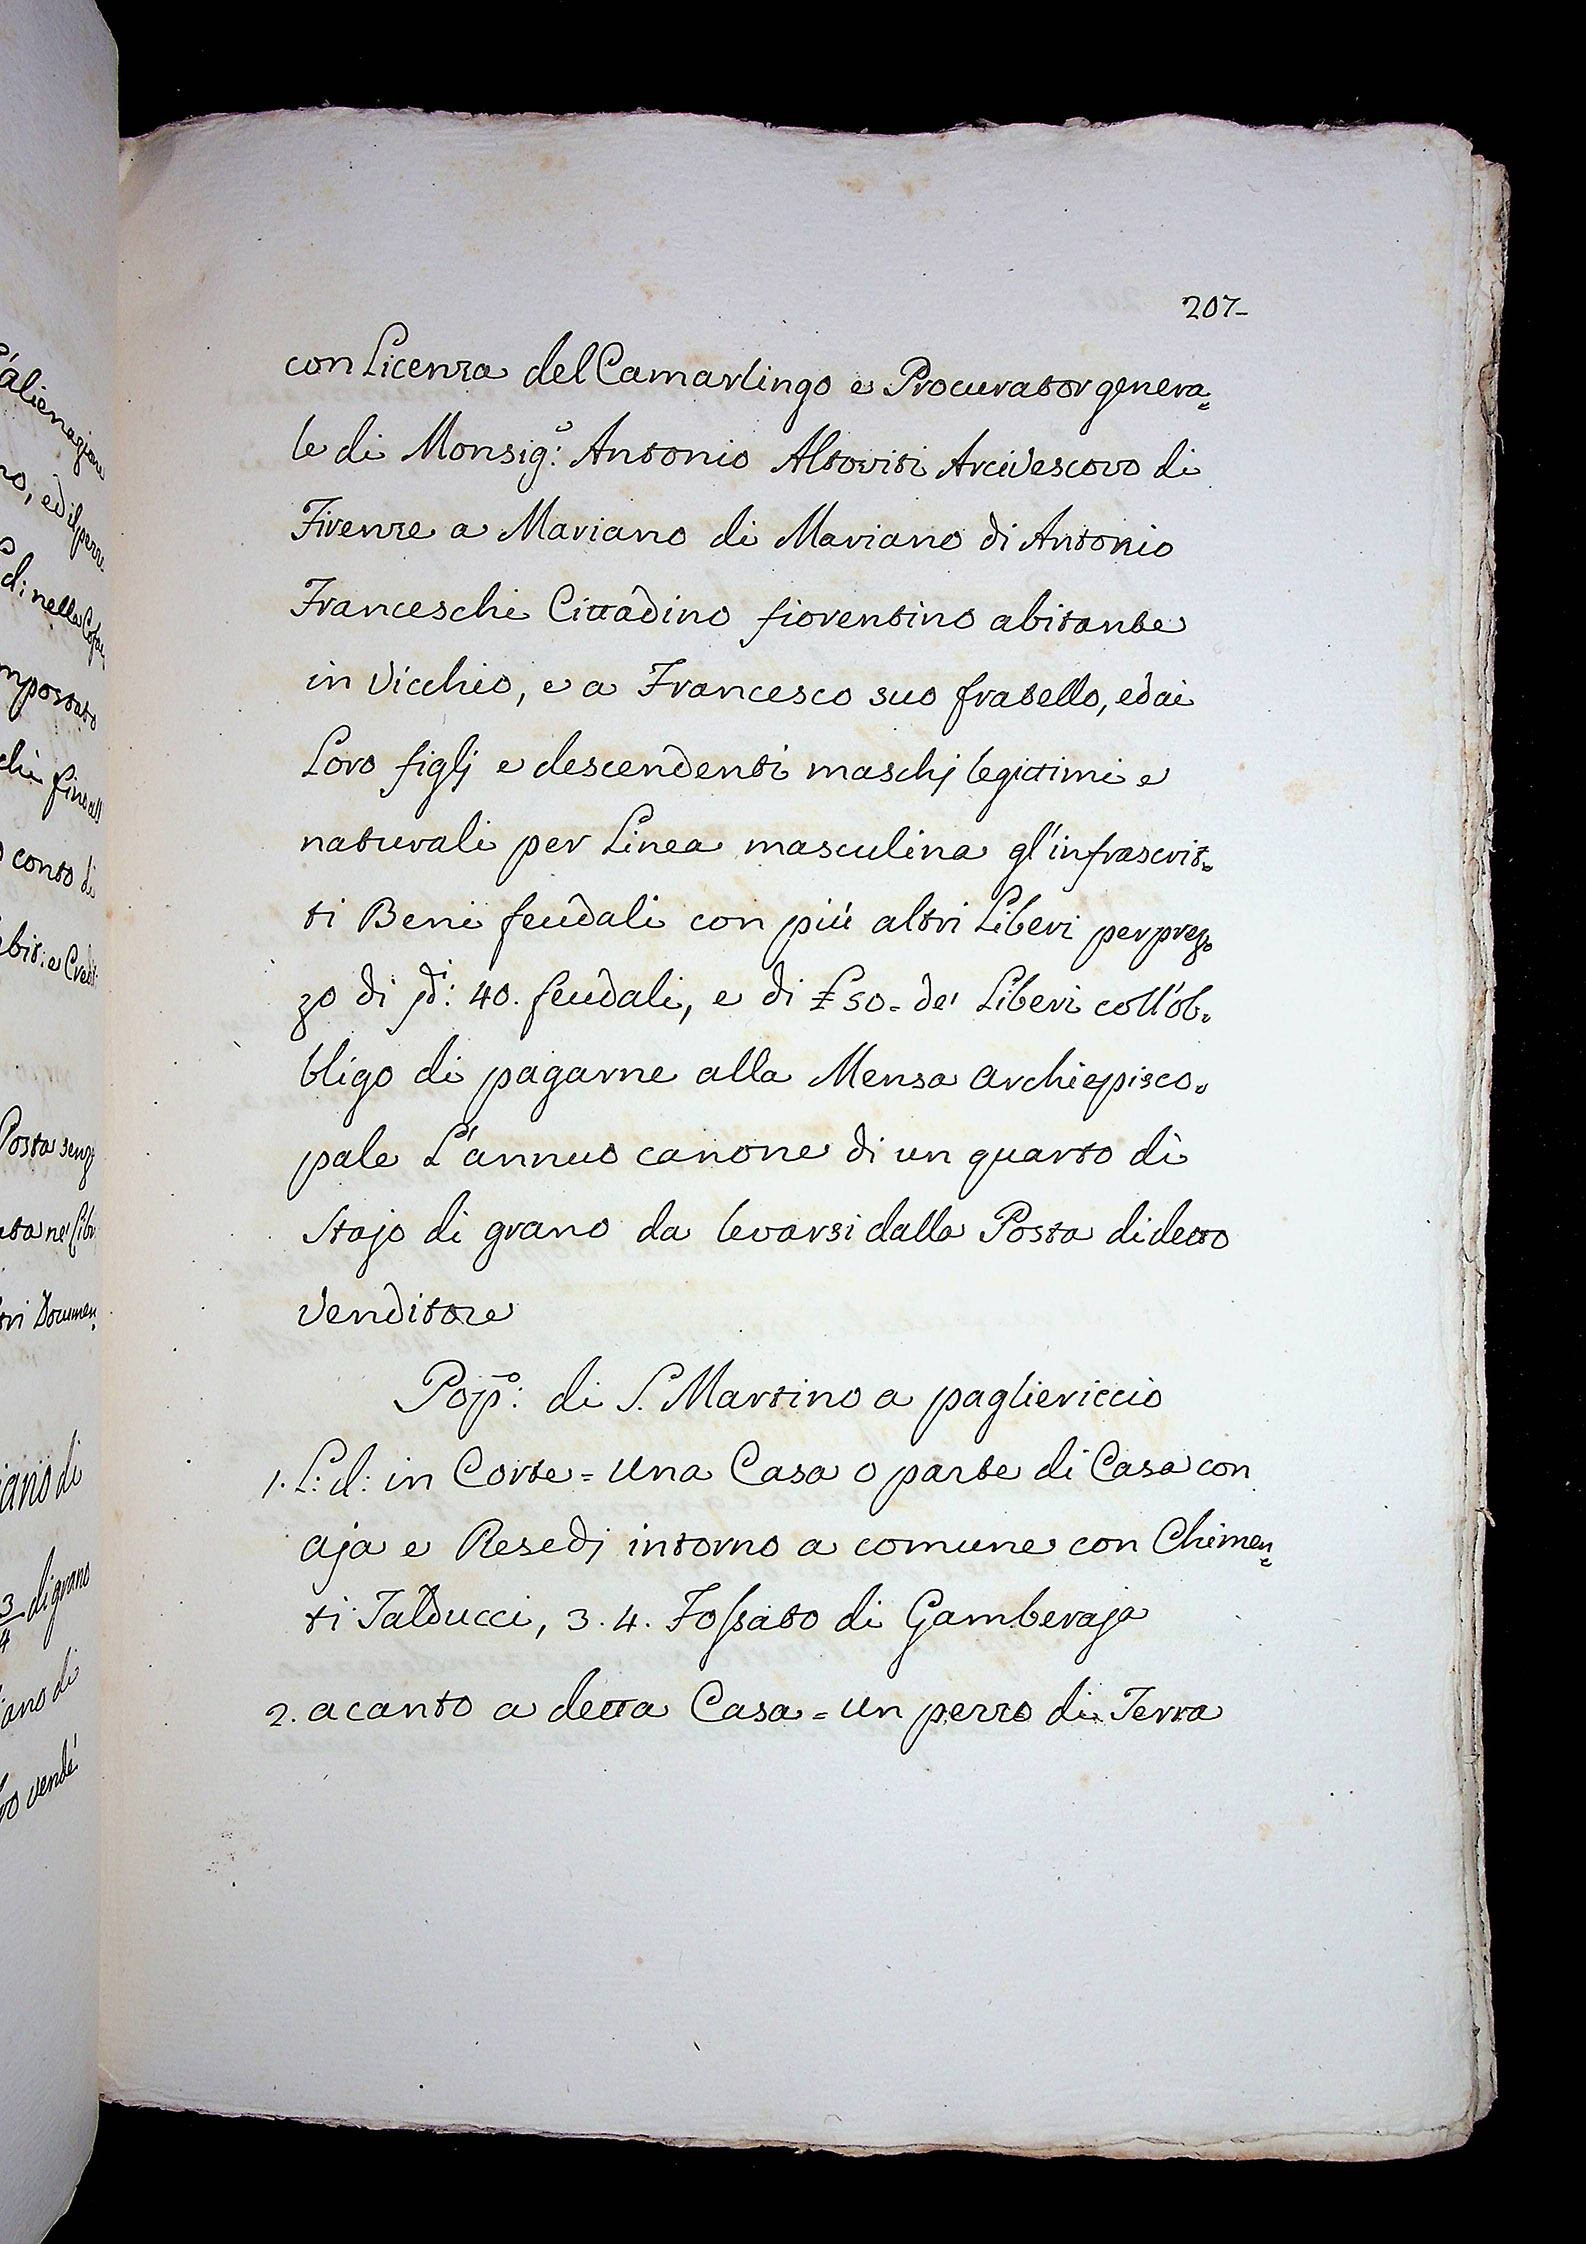 207-
con Licenza del Camarlingo e Procurator genera=
le di Monsig:º Antonio Altoviti Arcivescovo di
Firenze a Mariano di Mariano di Antonio
Franceschi Cittadino fiorentino abitante
in Vicchio, e a Francesco suo fratello, ed ai
Loro figlj e descendenti maschj legittimi e
naturali per Linea masculina gl'infrascrit=
ti Beni feudali con più altri Liberi per prez=
zo di 40. feudali, e di £ 50. de' Liberi coll'ob=
bligo di pagarne alla Mensa Archiepisco=
pale L'annuo canone di un quarto di
Stajo di grano da levarsi dalla Posta di detto
Venditore
Pop:º di S. Martino a pagliericcio
1. L: d: in Corte = Una Casa o parte di Casa con
aja e Resedj intorno a comune con Chimen=
ti Talducci, 3. 4. Fossato di Gamberaja
2. acanto a detta Casa = Un pezzo di Terra
L'alienazione
no, ed il
di nella
mpostato
conto di
ebit: e Credit
Posta senz
ata ne' Libri
tri Documen=
iano di
3/4 di grano
iano di
ro vendé